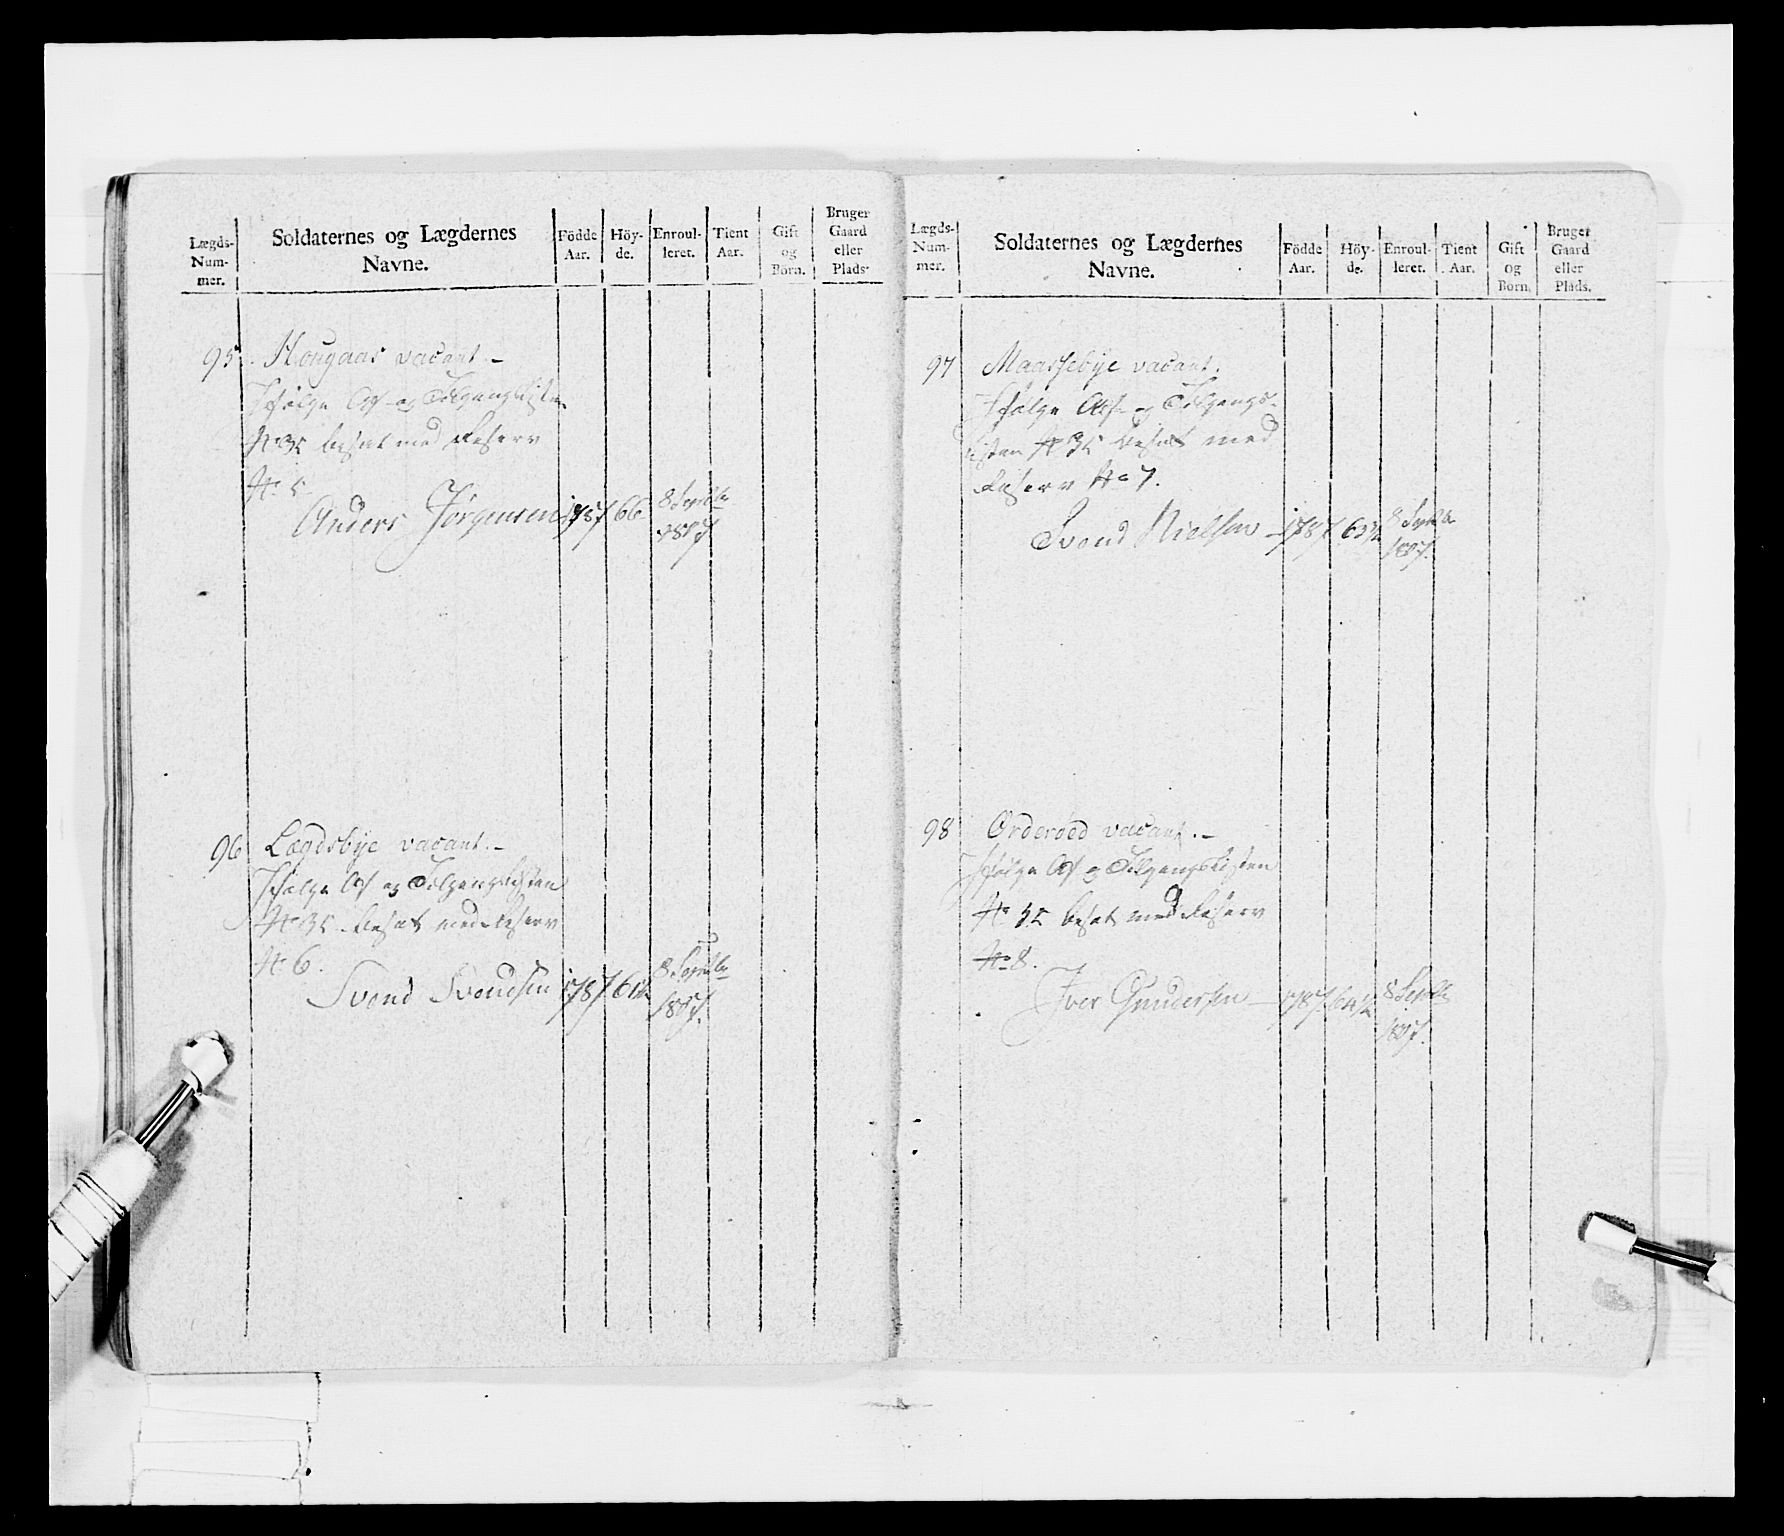 Lægds-
Num-
mer.
Soldaternes og Lægdernes
Navne.
Födde
Aar.
Höy-
de.
Enroul-
leret.
Tient
Aar.
Gift
og
Börn.
Bruger
Gaard
eller
Plads.
95. Hougaas vacant.-
Ifølge Af- og Tilgangslisten
No 35 besat med Reserv
No 5
Anders Jørgensen 1787 66 8 Septbr
1807
96 Lægdsbye vacant.-
Ifølge Af og Tilgangslisten
No 35 besat med Reserv
No 6.
Svend Svendsen 1787 8 Septbr
1807.
Lægds-
Num-
mer.
Soldaternes og Lægdernes
Navne.
Födde
Aar.
Höy-
de.
Enroul-
leret.
Tient
Aar.
Gift
og
Börn.
Bruger
Gaard
eller
Plads.
97 Maassebye vacant.
Ifølge Af- og Tilgangs-
listen No 35 besat med
Reserv No 7.
Svend Nielsen - 1787 8 Septbr
1807.
98 Ørderoed vacant.-
Ifølge Af og Tilgangslisten
No 35 besat med Reserv
No 8.
Iver Gundersen 1787 64 1/2 8 Septbr
1807.